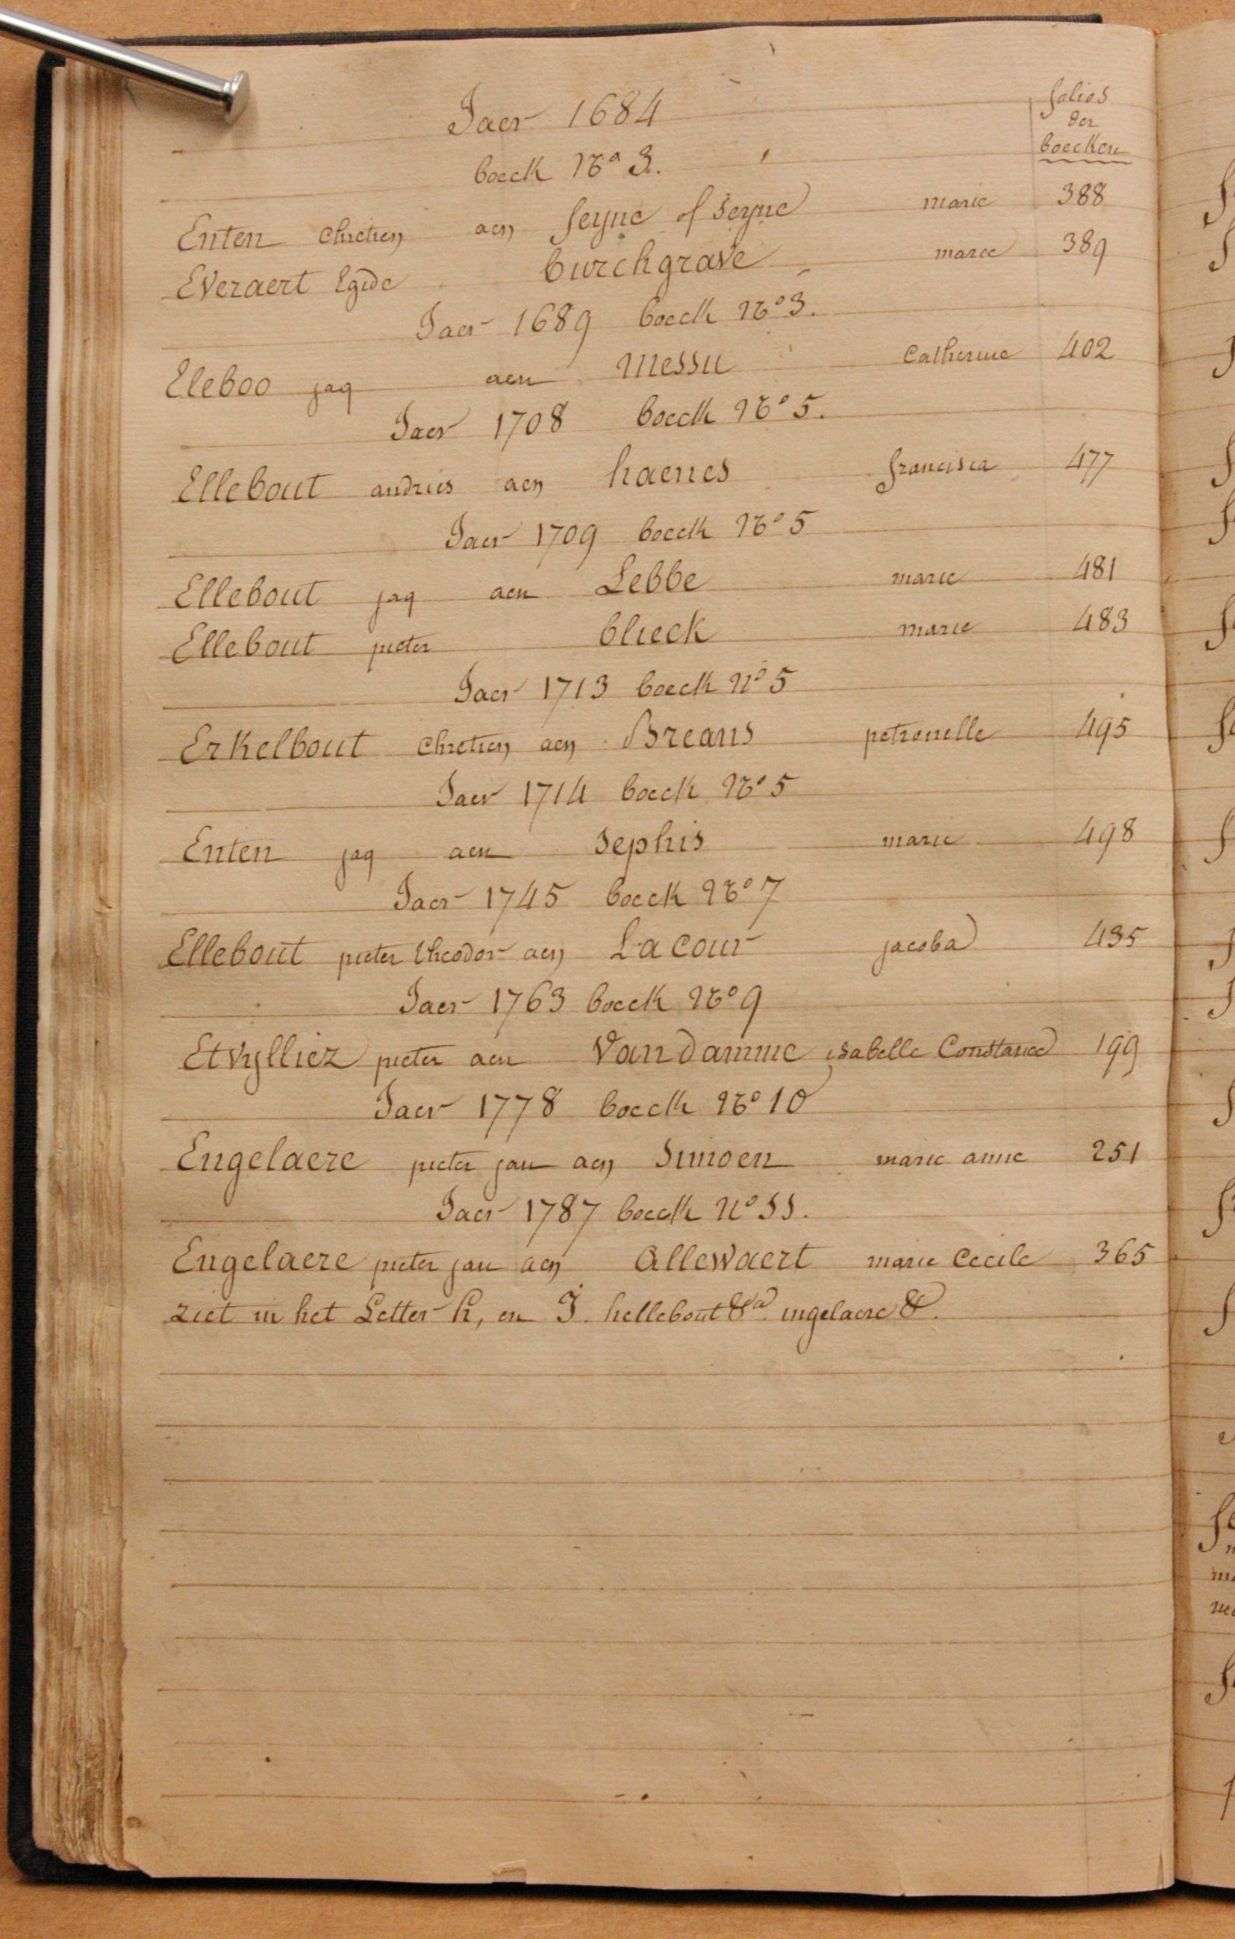 Jaer 1684
folios
der
boecken
boeck No 3.
Enten chretien aen seyne of seyne marie 388
Everaert Egide burchgrave marie 389
Jaer 1689 boeck No 3.
Eleboo jaq aen Messu Catherine 402
Jaer 1708 boeck No 5.
Ellebout andries aen haenes francisca 477
Jaer 1709 boeck No 5
Ellebout jaq aen Lebbe marie 481
Ellebout pieter blieck marie 483
Jaer 1713 boeck No 5
Erkelbout chretien aen Breans petronelle 495
Jaer 1714 boeck No 5
Enten jaq aen sephis marie 498
Jaer 1745 boeck No 7
Ellebout pieter theodor aen Lacour jacoba 435
Jaer 1763 boeck No 9
Etvylliez pieter aen Vandamme isabelle Constance 199
Jaer 1778 boeck No 10
Engelaere pieter jan aen Simoen marie anne 251
Jaer 1787 boeck No 11.
Engelaere pieter jan aen Allewaert marie Cecile 365
ziet in het Letter h, en J. hellebout &a ingelaere &.